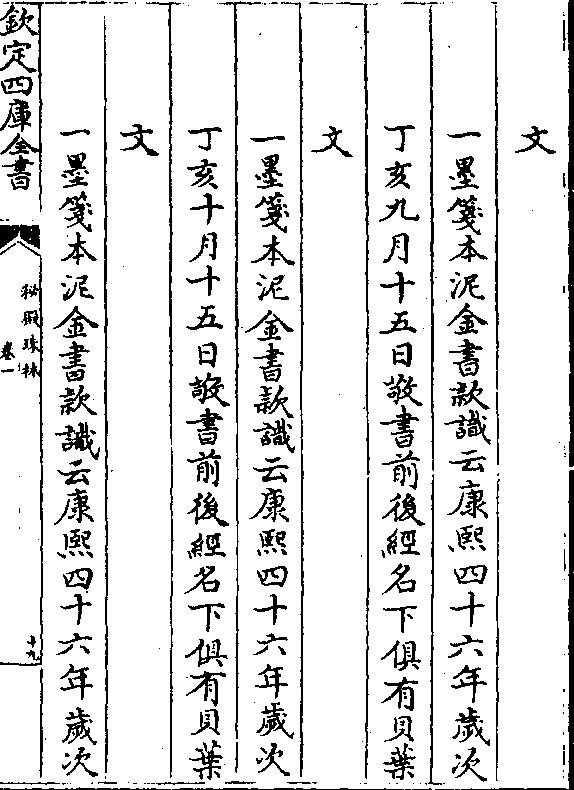 文
一墨箋本泥金書款識云康熙四十六年歲次
丁亥九月十五日敬書前後經名下俱有貝葉
文
一墨箋本泥金書款識云康熙四十六年歲次
丁亥十月十五日敬書前後經名下俱有貝葉
文
一墨箋本泥金書款識云康熙四十六年歲次
欽定四庫全書
秘殿珠林
卷一
十九